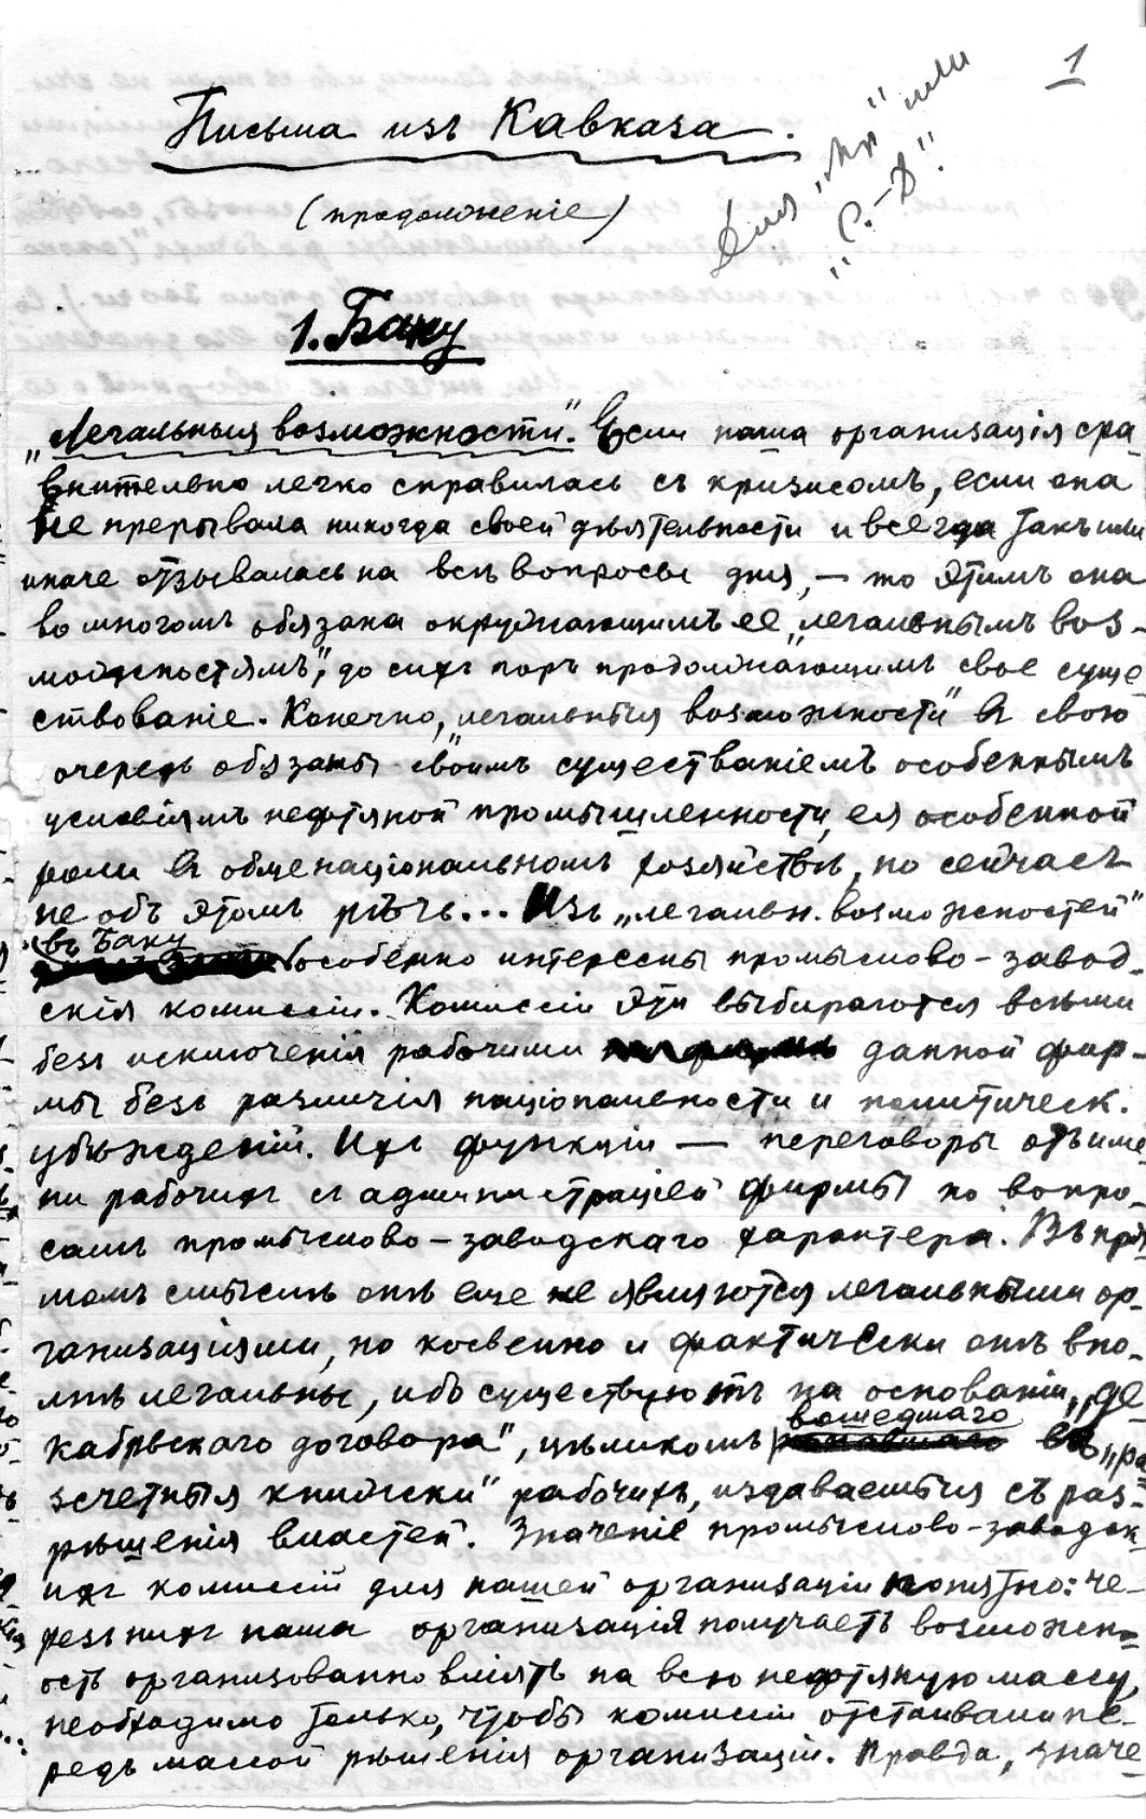 1
Письма изъ Кавказа.
(продолженіе)
Для „Мр“ или
„С.-Д“.
1. Баку
„Легальныя возможности“. Если наша организація сра
внительно легко справилась съ кризисомъ, если она
не прерывала никогда своей дѣятельности и всегда такъ или
иначе отзывалась на всѣ вопросы дня, — то этимъ она
во многомъ обязана окружающимъ ее „легальнымъ воз-
можностямъ“, до сихъ поръ продолжающимъ свое суще
ствованіе. Конечно, „легальныя возможности“ въ свою
очередь обязаны своимъ существаніемъ особеннымъ
условіямъ нефтяной промышленности, ея особенной
роли въ общенаціональномъ хозяйствѣ, но сейчасъ
не объ этомъ рѣчь... Изъ „легальн. возможностей“
въ Баку
особенно интересны промыслово-завод-
скія комиссіи. Комиссіи эти выбираются всѣми
безъ исключенія рабочими данной фир-
мы безъ различія національности и политическ.
убѣжденій. Ихъ функціи — переговоры отъ име
ни рабочихъ съ администраціей фирмы по вопро-
самъ промыслово-заводскаго характера. Въ пря
момъ смыслѣ онѣ еще не являются легальными ор-
ганизаціями, но косвенно и фактически онѣ впо-
лнѣ легальны, ибо существуютъ на основаніи „де
кабрьскаго договора“, цѣликомъ вошедшаго въ „ра
зсчетныя книжски“ рабочихъ, издаваемыя съ раз-
рѣшенія властей. Значеніе промыслово-заводск-
ихъ комиссій для нашей организаціи понятно: че-
резъ нихъ наша организація получаетъ возможн-
ость организованно вліять на всю нефтяную массу,
необходимо только, чтобы комиссіи отстаивали пе-
редъ массой рѣшенія организаціи. Правда, значе